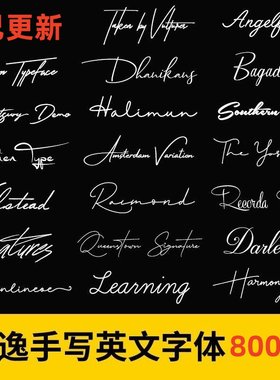 已更新
Taken by Vultures
Angel
Typeface
Dhanikans
Bagad
Demo
Halimun
Southern
Type
Amsterdam Variation
The Yo
stead
Raimond
Records
Queenstown Signature
Darle
Learning
Harmon
逸手写英文字体 800